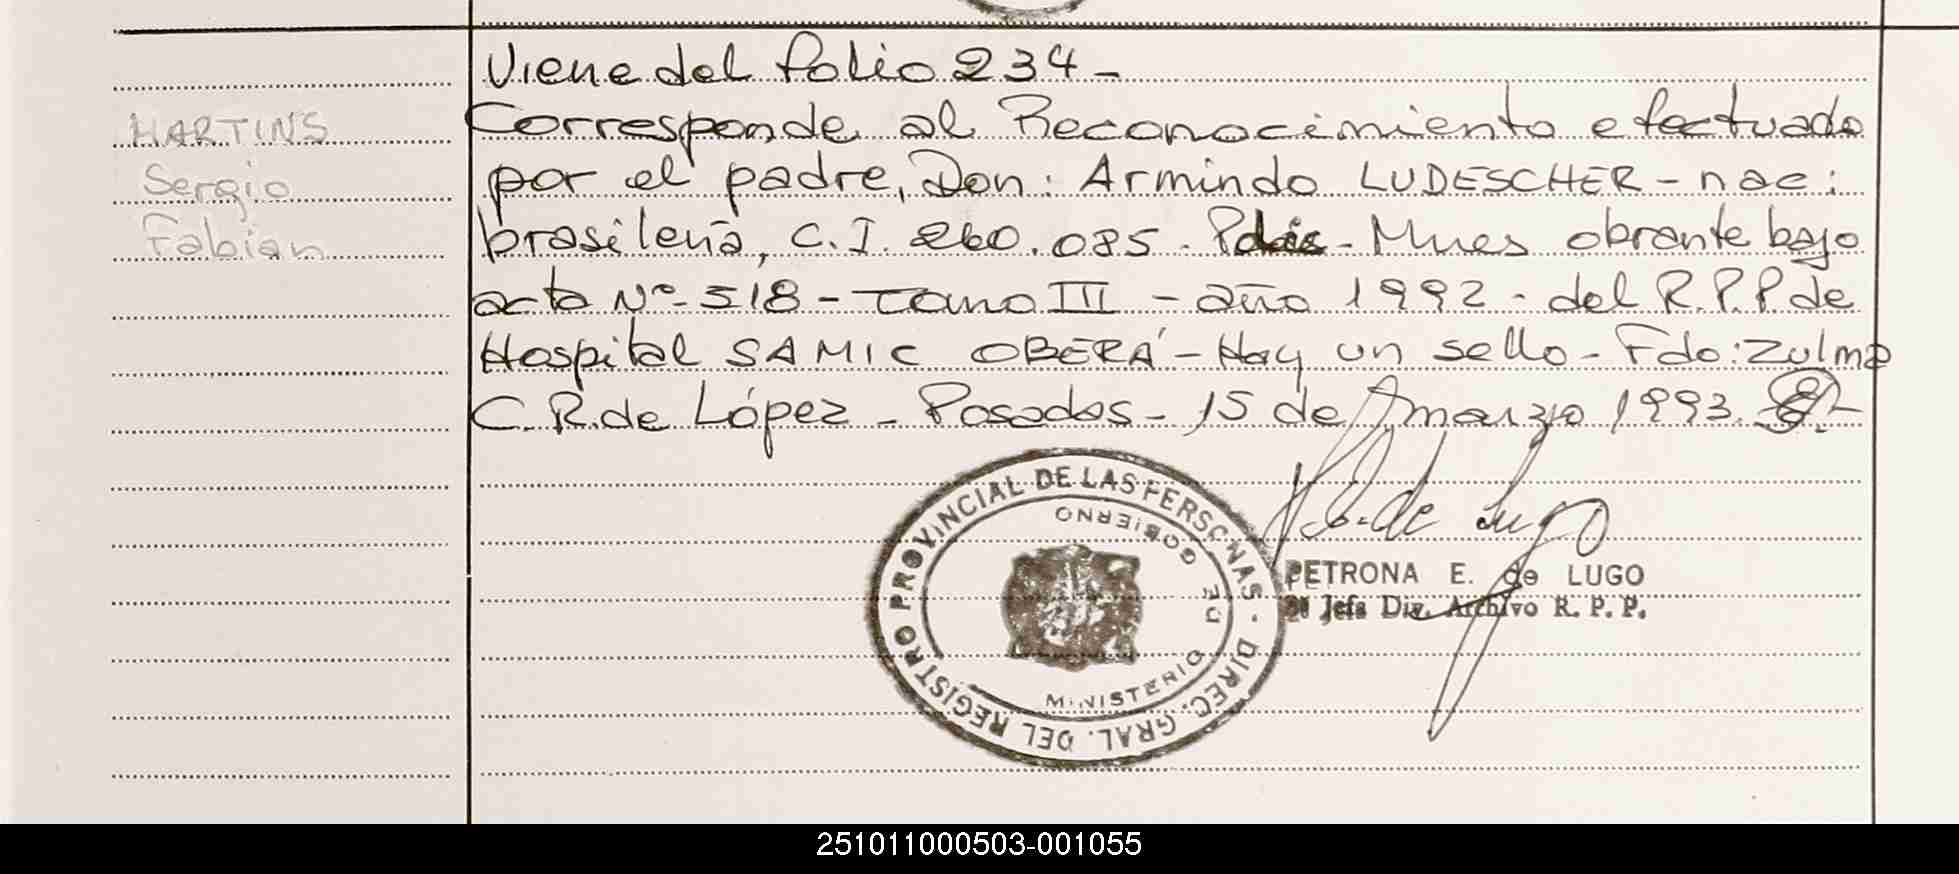 Viene del folio 234 -
MARTINS
Sergio
Fabian
Corresponde al Reconocimiento efectuado
por el padre, Don: Armindo LUDESCHER - nac:
brasileña, C.I. 260.085 - Pdas - Mnes obrante bajo
acta Nº - 518 - Tomo III - año 1992 - del R.P.P. de
Hospital SAMIC OBERÁ - Hay un sello - Fdo: Zulma
C. R. de López - Posadas - 15 de marzo 1993.
DIREC. GRAL. DEL REGISTRO PROVINCIAL DE LAS PERSONAS -
MINISTERIO DE GOBIERNO
de Lugo
PETRONA E. de LUGO
Jefa Div. Archivo R. P. P.
251011000503-001055